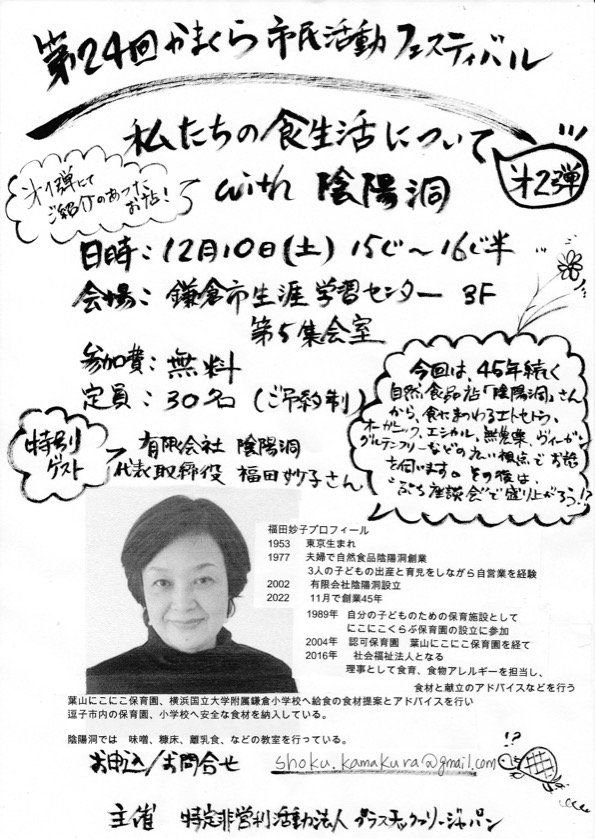 第24回かまくら市民活動フェスティバル
私たちの食生活について
with 陰陽洞
第2弾
第1弾にて
ご紹介のあった
お店!
日時:12月10日(土) 15じ〜16じ半
会場:鎌倉市生涯学習センター 3F
第5集会室
参加費:無料
定員:30名(ご予約制)
今回は、45年続く
自然食品店「陰陽洞」さん
から、食にまつわるエトセトラ、
オーガニック、エシカル、無農薬、ヴィーガン、
グルテンフリーなどの広い視点でお話
を伺います。その後は、
"ぷち座談会"で盛り上がろう!?
特別
ゲスト
有限会社 陰陽洞
代表取締役 福田妙子さん
福田妙子プロフィール
1953 東京生まれ
1977 夫婦で自然食品陰陽洞創業
3人の子どもの出産と育児をしながら自営業を経験
2002 有限会社陰陽洞設立
2022 11月で創業45年
1989年 自分の子どものための保育施設として
にこにこくらぶ保育園の設立に参加
2004年 認可保育園 葉山にこにこ保育園を経て
2016年 社会福祉法人となる
理事として食育、食物アレルギーを担当し、
食材と献立のアドバイスなどを行う
葉山にこにこ保育園、横浜国立大学附属鎌倉小学校へ給食の食材提案とアドバイスを行い
逗子市内の保育園、小学校へ安全な食材を納入している。
陰陽洞では 味噌、糠床、離乳食、などの教室を行っている。
お申込/お問合せ shoku.kamakura@gmail.com
!?
主催 特定非営利活動法人 プラスチックフリージャパン